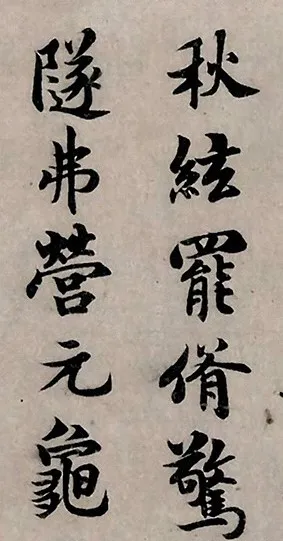 秋絃罷脩驚
隧弗營元龜